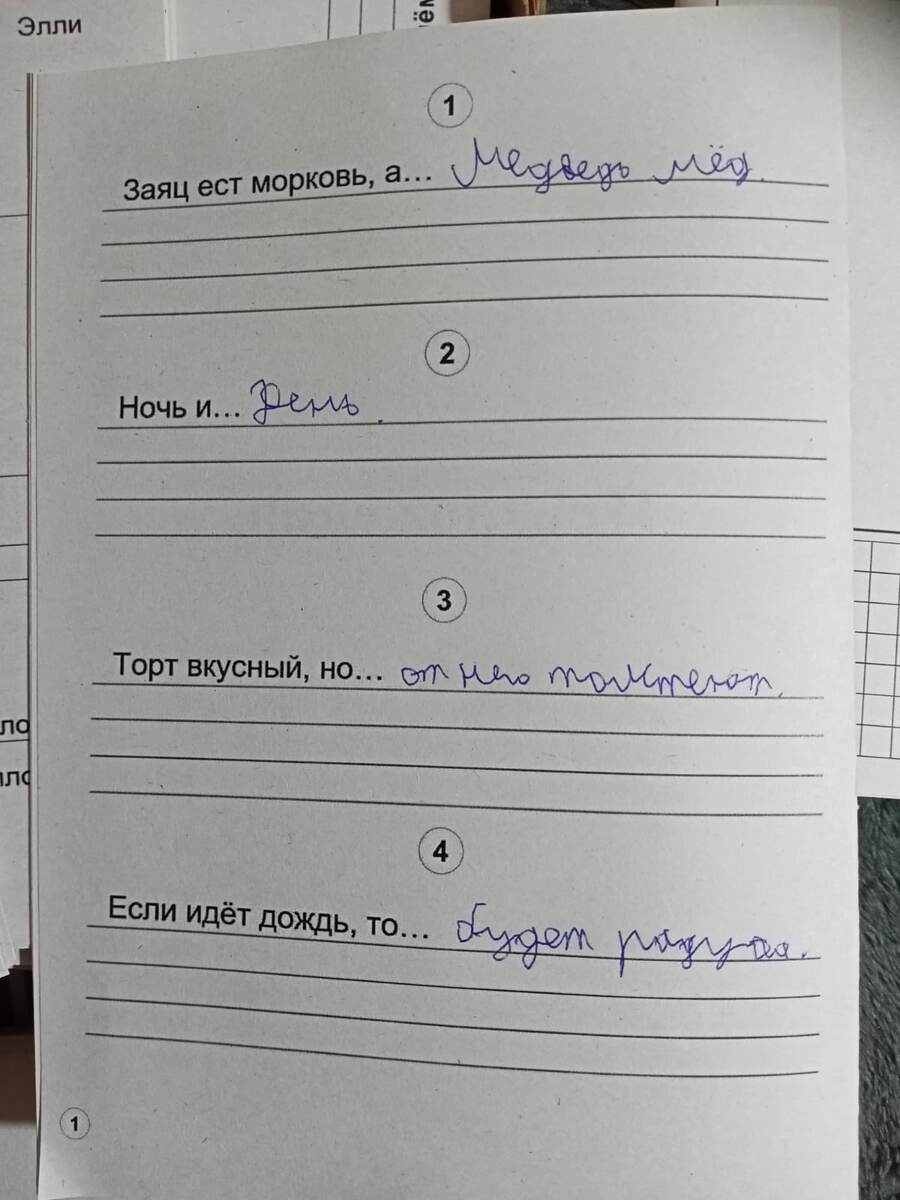 Элли
ём
1
Заяц ест морковь, а... Медведь мёд.
2
Ночь и... День.
3
Торт вкусный, но... от него толстеют.
ло
ло
4
Если идёт дождь, то... будет радуга.
1